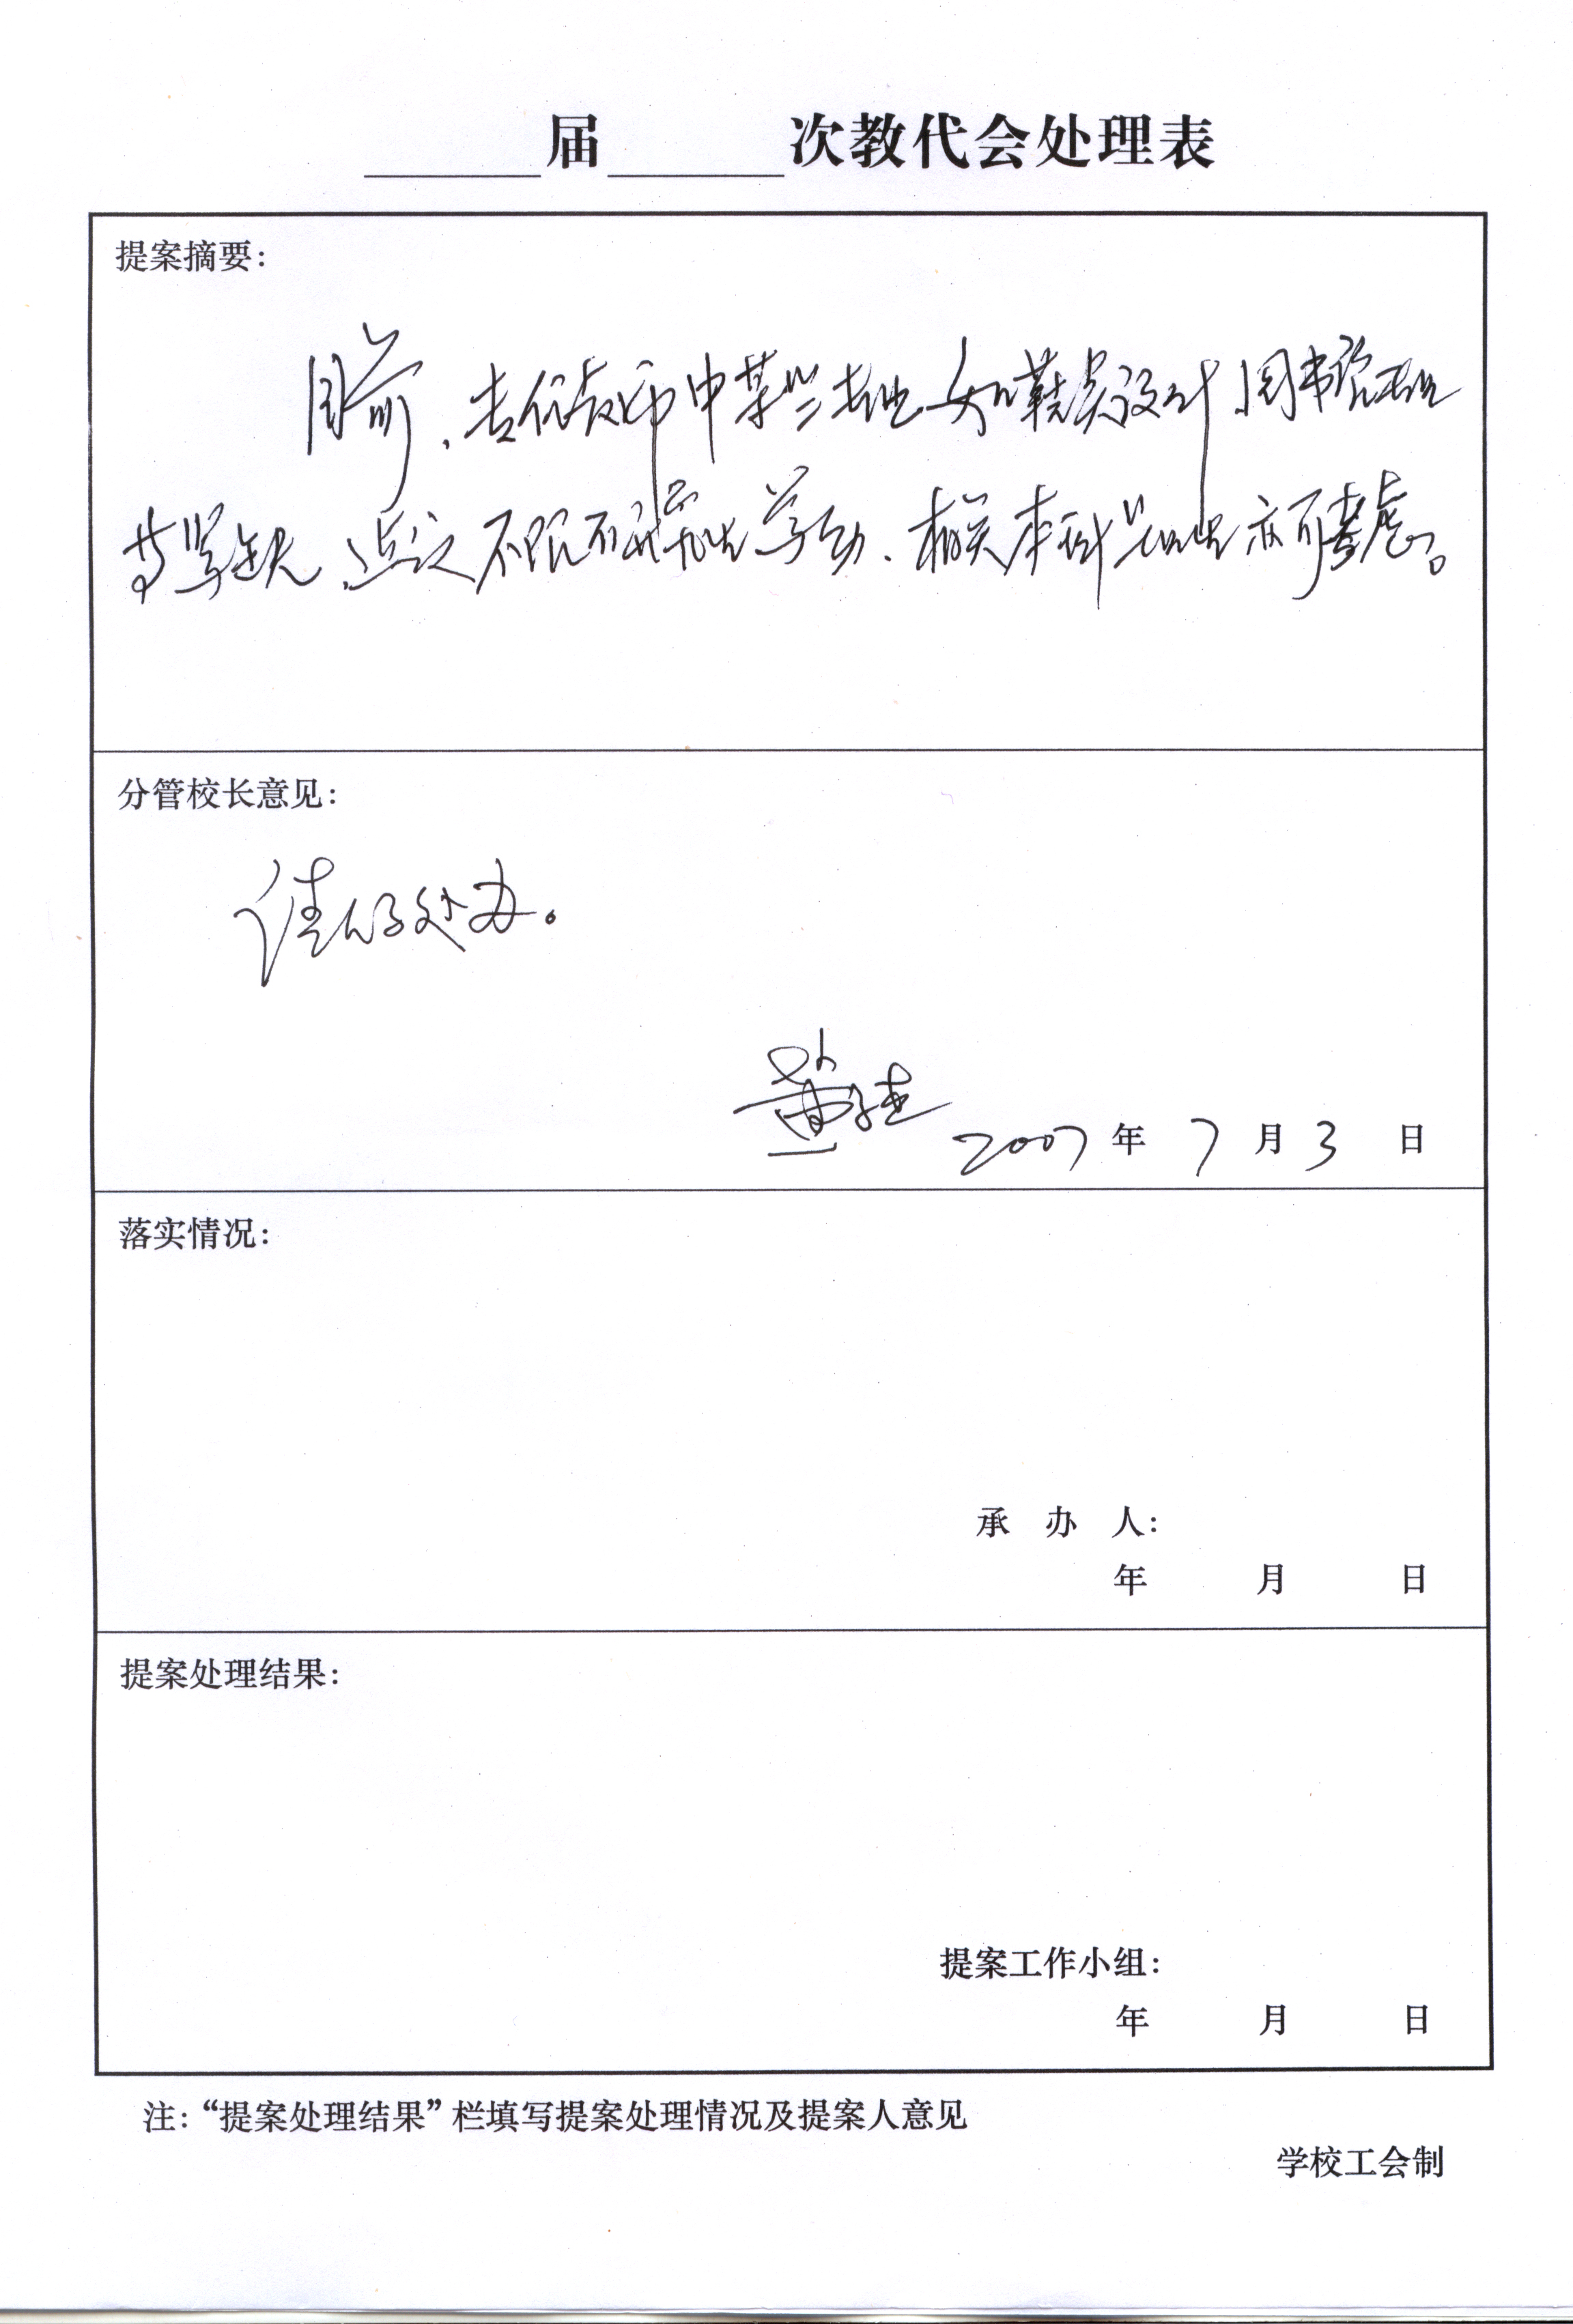 届 次教代会处理表
提案摘要：
目前、专任教师中某些专业如鞋类设计、图书馆专业
等紧缺，建议不限研究生学历、相关本科毕业生亦可考虑。
分管校长意见：
请人事处办。
2007年7月3日
落实情况：
承 办 人：
年 月 日
提案处理结果：
提案工作小组：
年 月 日
注：“提案处理结果”栏填写提案处理情况及提案人意见
学校工会制